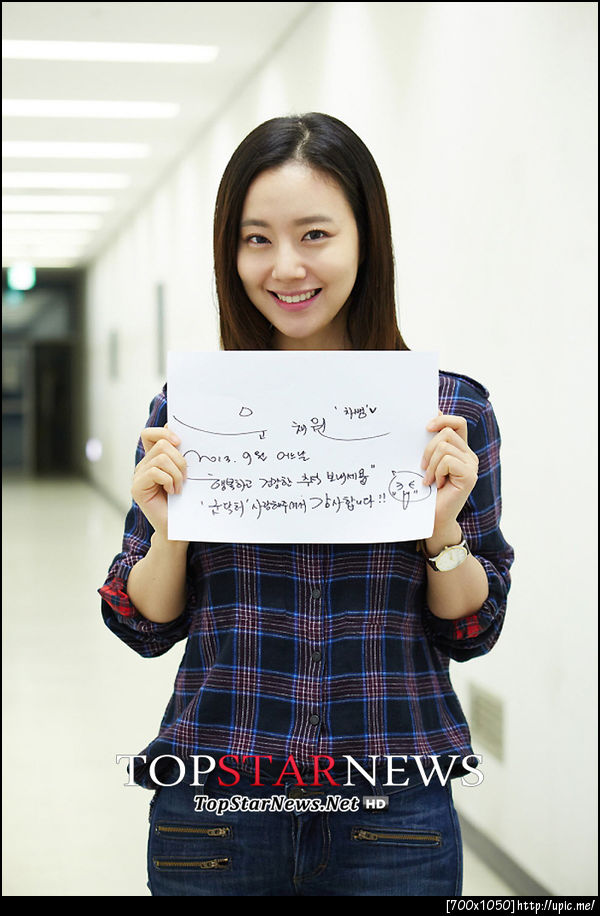 문 채원 '차쌤'♥
2013. 9월 어느날
"행복하고 건강한 추석 보내세요"
'굿닥터' 사랑해주셔서 감사합니다!!
TOPSTARNEWS
TopStarNews.Net HD
[700x1050]http://upic.me/